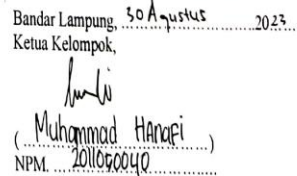 Bandar Lampung, 30 Agustus 2023
Ketua Kelompok,
(Muhammad Hanafi)
NPM. 2011050040